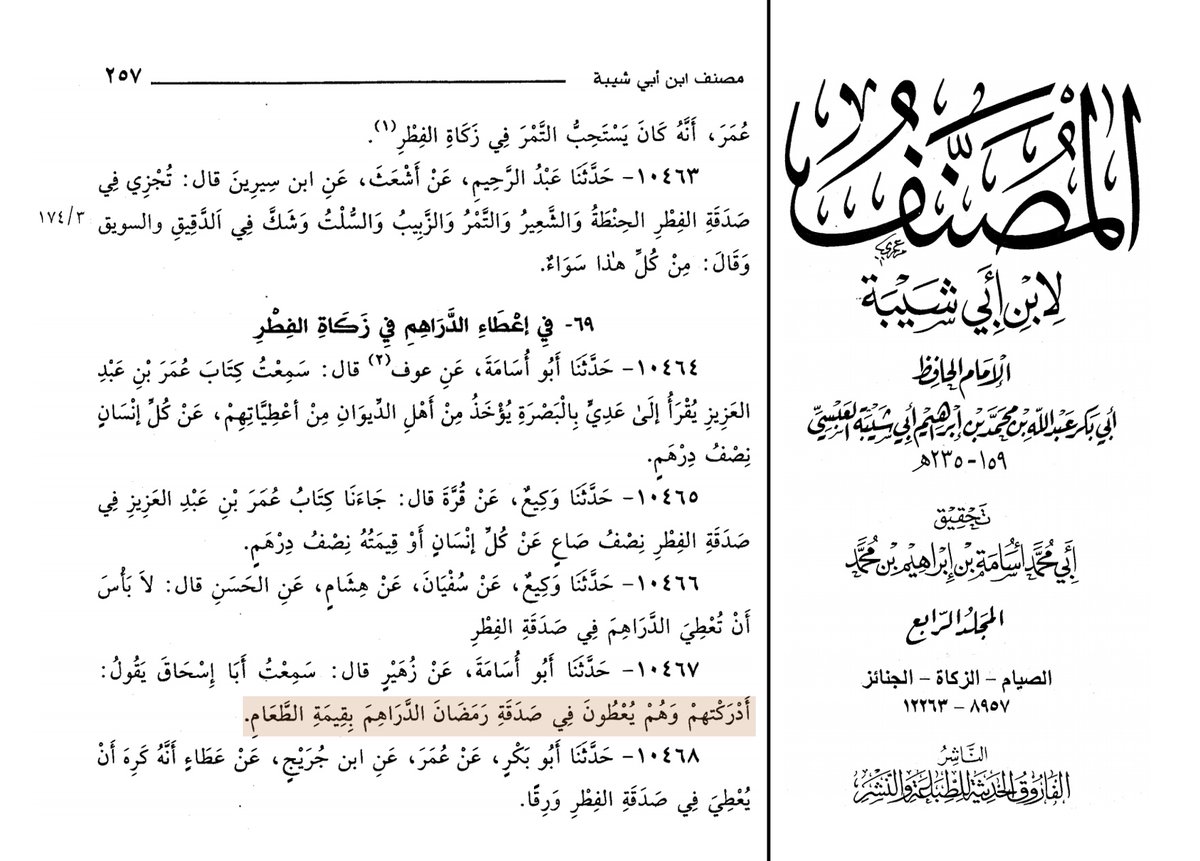 مصنف ابن أبي شيبة ٢٥٧
عُمَرَ، أَنَّهُ كَانَ يَسْتَحِبُّ التَّمْرَ فِي زَكَاةِ الفِطْرِ(١).
١٠٤٦٣- حَدَّثَنَا عَبْدُ الرَّحِيمِ، عَنْ أَشْعَثَ، عَنِ ابن سِيرِينَ قال: تُجْزِي فِي
صَدَقَةِ الفِطْرِ الحِنْطَةُ وَالشَّعِيرُ وَالتَّمْرُ وَالزَّبِيبُ وَالسُّلْتُ وَشَكَّ فِي اَلدَّقِيقِ والسويق ١٧٤/٣
وَقَالَ: مِنْ كُلِّ هٰذا سَوَاءٌ.
٦٩- فِي إعْطَاءِ الدَّرَاهِمِ فِي زَكَاةِ الفِطْرِ
١٠٤٦٤- حَدَّثَنَا أَبُو أُسَامَةَ، عَنِ عوف(٢) قال: سَمِعْتُ كِتَابَ عُمَرَ بْنِ عَبْدِ
العَزِيزِ يُقْرَأُ إلَىٰ عَدِيٍّ بِالْبَصْرَةِ يُؤْخَذُ مِنْ أَهْلِ الدِّيوَانِ مِنْ أَعْطِيَّاتِهِمْ، عَنْ كُلِّ إنْسَانٍ
نِصْفُ دِرْهَمٍ.
١٠٤٦٥- حَدَّثَنَا وَكِيعٌ، عَنْ قُرَّةَ قال: جَاءَنَا كِتَابُ عُمَرَ بْنِ عَبْدِ العَزِيزِ فِي
صَدَقَةِ الفِطْرِ نِصْفُ صَاعٍ عَنْ كُلِّ إنْسَانٍ أَوْ قِيمَتُهُ نِصْفُ دِرْهَمٍ.
١٠٤٦٦- حَدَّثَنَا وَكِيعٌ، عَنْ سُفْيَانَ، عَنْ هِشَامٍ، عَنِ الحَسَنِ قال: لاَ بَأْسَ
أَنْ تُعْطِيَ الدَّرَاهِمَ فِي صَدَقَةِ الفِطْرِ
١٠٤٦٧- حَدَّثَنَا أَبُو أُسَامَةَ، عَنْ زُهَيْرٍ قال: سَمِعْتُ أَبَا إِسْحَاقَ يَقُولُ:
أَدْرَكْتهمْ وَهُمْ يُعْطُونَ فِي صَدَقَةِ رَمَضَانَ الدَّرَاهِمَ بِقِيمَةِ الطَّعَامِ.
١٠٤٦٨- حَدَّثَنَا أَبُو بَكْرٍ، عَنْ عُمَرَ، عَنِ ابن جُرَيْجٍ، عَنْ عَطَاءٍ أَنَّهُ كَرِهَ أَنْ
يُعْطِيَ فِي صَدَقَةِ الفِطْرِ وَرِقًا.
المُصَنَّفُ
لِابْنِ أَبِي شَيْبَةَ
الإمام الحافظ
أبي بكر عبد الله بن محمد بن إبراهيم أبي شيبة العبسيّ
١٥٩-٢٣٥هـ
تحقيق
أبي محمد أسامة بن إبراهيم بن محمد
المجلد الرابع
الصيام - الزكاة - الجنائز
٨٩٥٧ - ١٢٢٦٣
الناشر
الفاروق الحديثة للطباعة والنشر